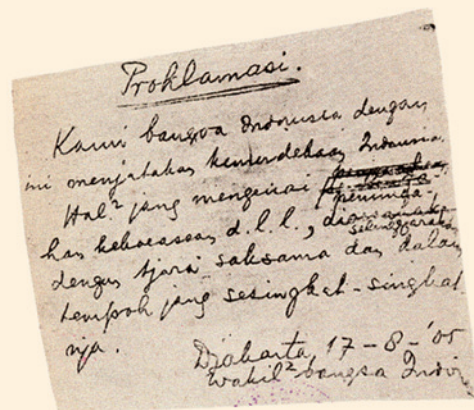 Proklamasi.
Kami bangsa Indonesia dengan
ini menjatakan kemerdekaan Indonesia.
Hal² jang mengenai
han keboeasaan d.l.l., diselenggarakan
dengan tjara saksama dan dalam
tempoh jang sesingkat-singkat-
nja.
Djakarta, 17 - 8 - '05
Wakil² bangsa